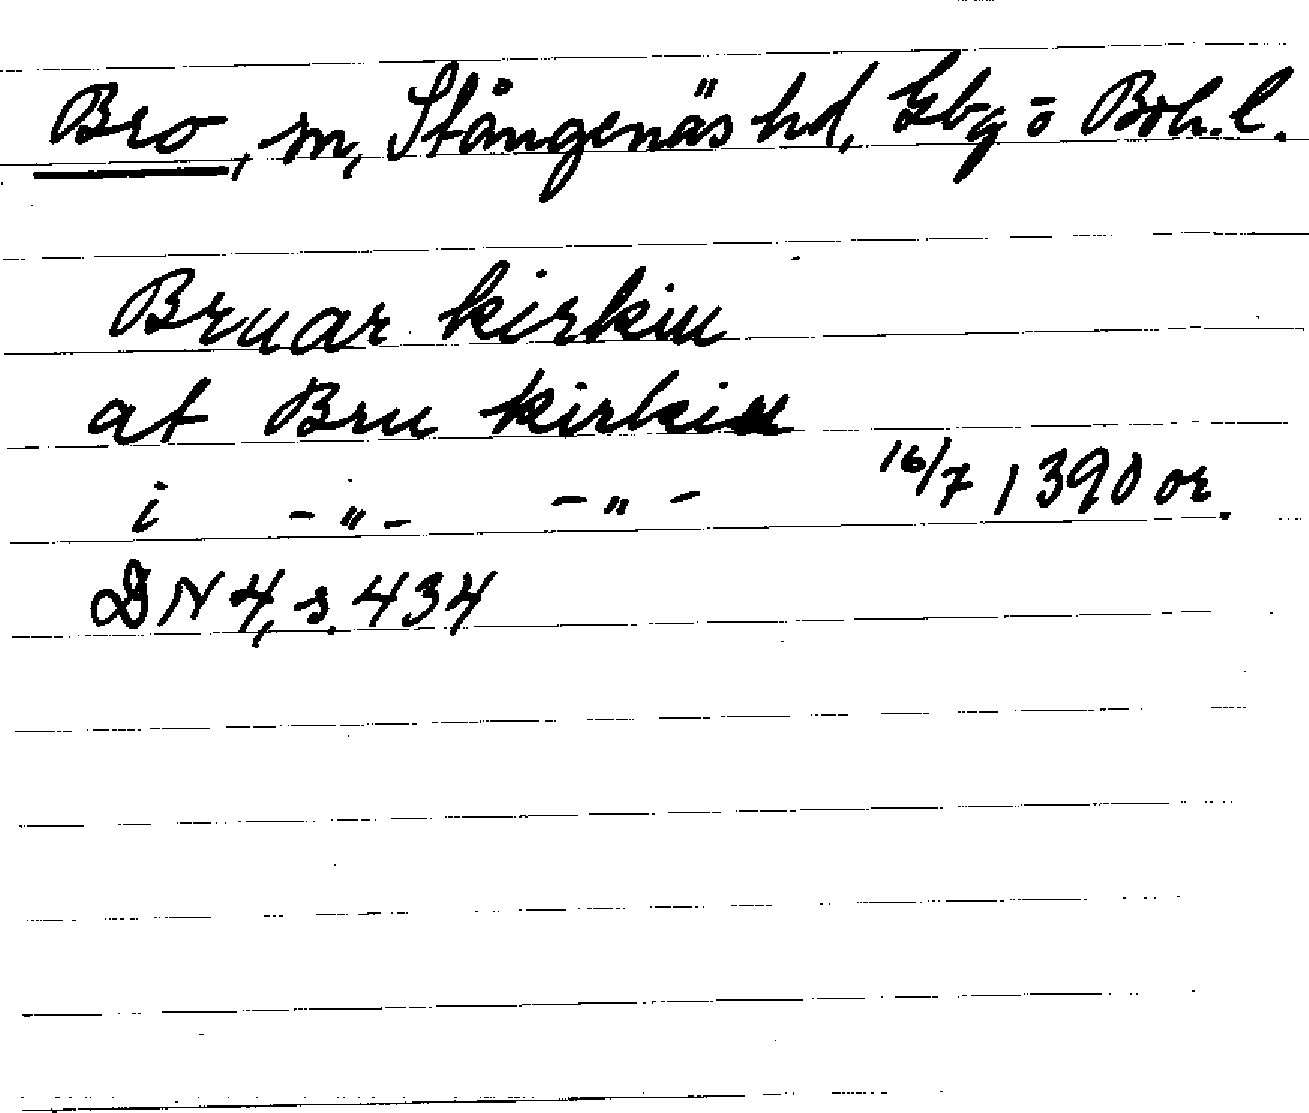 Bro, sn, Stångenäs hd, Gbg o Boh. l.
Bruar kirkiu
at Bru kirkiu
i -"- -"- 16/7 1390 or.
DN 4, s. 434